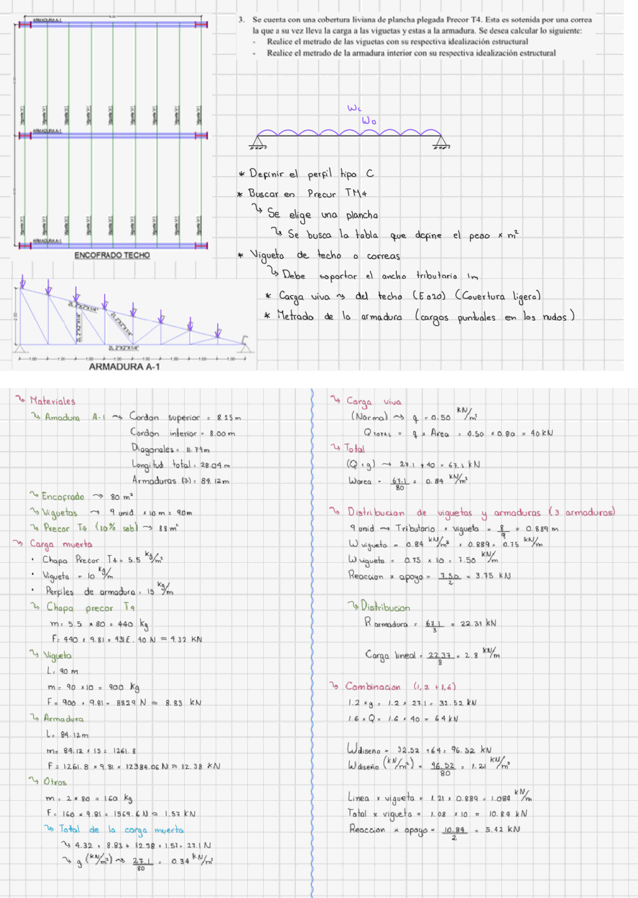 3. Se cuenta con una cobertura liviana de plancha plegada Precor T4. Esta es sotenida por una correa
la que a su vez lleva la carga a las viguetas y estas a la armadura. Se desea calcular lo siguiente:
- Realice el metrado de las viguetas con su respectiva idealización estructural
- Realice el metrado de la armadura interior con su respectiva idealización estructural
ARMADURA A-1
ARMADURA A-1
ARMADURA A-1
ENCOFRADO TECHO
2L 2"X2"X1/4"
2L 2"X2"X1/4"
2L 2"X2"X1/4"
2L 2"X2"X1/4"
1.00 1.00 1.00 1.00 1.00 1.00 1.00 1.00
ARMADURA A-1
WL
WD
* Definir el perfil tipo C
* Buscar en Precur TM4
↳ Se elige una plancha
↳ Se busca la tabla que define el peso x m²
* Vigueta de techo o correas
↳ Debe soportar el ancho tributario 1m
* Carga viva ~> del techo (E020) (Covertura ligera)
* Metrado de la armadura (cargas puntuales en los nudos)
↳ Materiales
↳ Armadura A-1 ~> Cordon superior = 8.25m
Cordon interior = 8.00m
Diagonales = 8.79m
Longitud total = 28.04m
Armaduras (3) = 84.12m
↳ Encofrado → 80 m²
↳ Viguetas → 9 unid x 10 m = 90m
↳ Precor T4 (10% sob) → 88 m²
↳ Carga muerta
• Chapa Precor T4 = 5.5 kg/m²
• Vigueta = 10 kg/m
• Perfiles de armadura = 15 kg/m
↳ Chapa precor T4
m = 5.5 x 80 = 440 kg
F = 440 x 9.81 = 4316.40 N ≈ 4.32 KN
↳ Vigueta
L = 90 m
m = 90 x 10 = 900 kg
F = 900 x 9.81 = 8829 N ≈ 8.83 KN
↳ Armadura
L = 84.12m
m = 84.12 x 15 = 1261.8
F = 1261.8 x 9.81 = 12384.06 N ≈ 12.38 KN
↳ Otros
m = 2 x 80 = 160 kg
F = 160 x 9.81 = 1569.6 N ≈ 1.57 KN
↳ Total de la carga muerta
↳ 4.32 + 8.83 + 12.38 + 1.57 = 27.1 N
↳ g (kN/m²) ~> 27.1/80 = 0.34 kN/m²
↳ Carga viva
(Normal) ~> q = 0.50 kN/m²
Q total = q x Area = 0.50 x 0.80 = 40 KN
↳ Total
(Q + g) → 27.1 + 40 = 67.1 KN
Warea = 67.1/80 = 0.84 kN/m²
↳ Distribucion de viguetas y armaduras (3 armaduras)
9 unid → Tributario x vigueta = 8/9 = 0.889 m
W vigueta = 0.84 kN/m² x 0.889 = 0.75 kN/m
W vigueta = 0.75 x 10 = 7.50 kN/m
Reaccion x apoyo = 7.50/2 = 3.75 KN
↳ Distribucion
R armadura = 67.1/3 = 22.37 KN
Carga lineal = 22.37/8 = 2.8 kN/m
↳ Combinacion (1,2 + 1,6)
1.2 x g = 1.2 x 27.1 = 32.52 KN
1.6 x Q = 1.6 x 40 = 64 KN
Wdiseño = 32.52 + 64 = 96.52 KN
Wdiseño (kN/m²) = 96.52/80 = 1.21 kN/m²
Linea x vigueta = 1.21 x 0.889 = 1.084 kN/m
Total x vigueta = 1.08 x 10 = 10.84 KN
Reaccion x apoyo = 10.84/2 = 5.42 KN